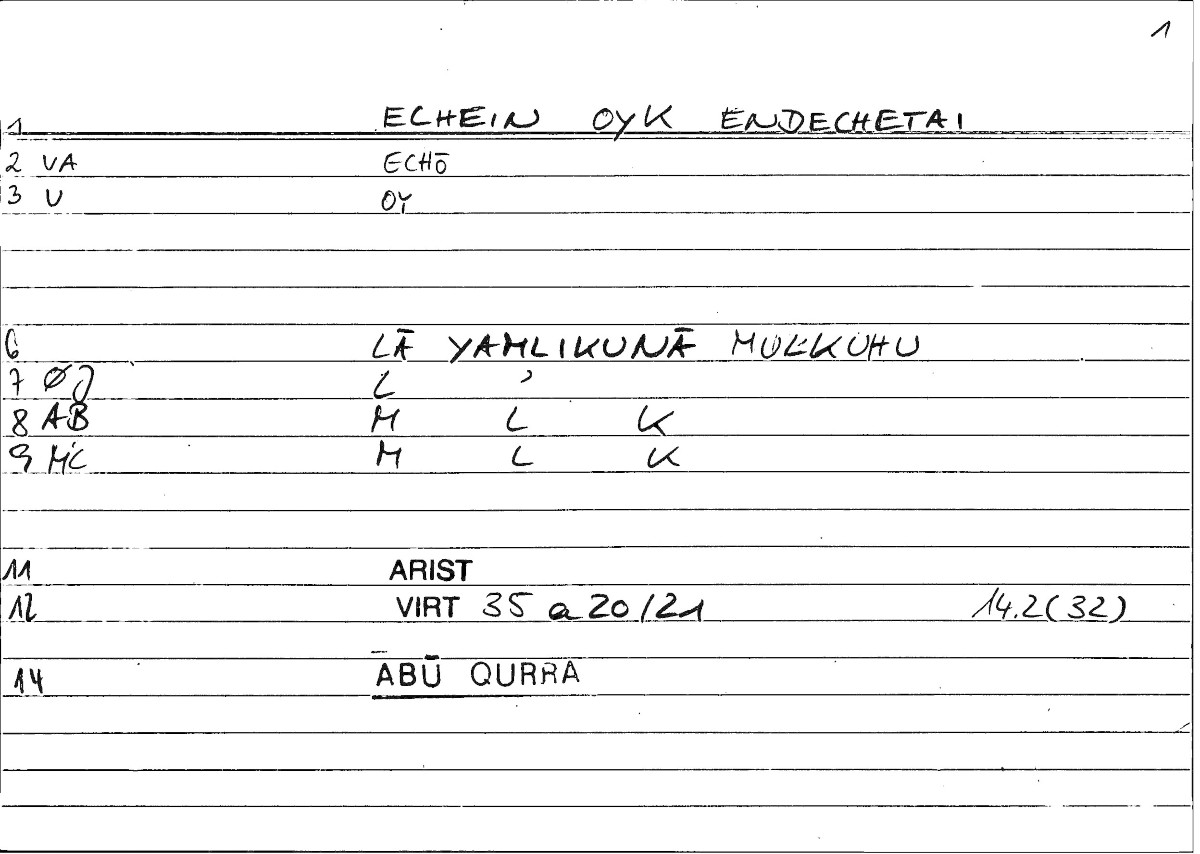 1
1 ECHEIN OYK ENDECHETAI
2 VA ECHŌ
3 U OY
6 LĀ YAMLIKUNĀ MULKUHU
7 ØJ L ʾ
8 AB M L K
9 MC M L K
11 ARIST
12 VIRT 35 a 20/21 14.2(32)
14 ABŪ QURRA